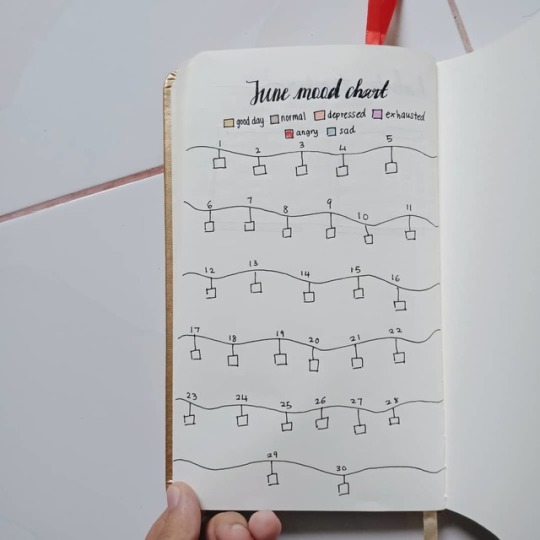 June mood chart
good day normal depressed exhausted
angry sad
1 2 3 4 5
6 7 8 9 10 11
12 13 14 15 16
17 18 19 20 21 22
23 24 25 26 27 28
29 30